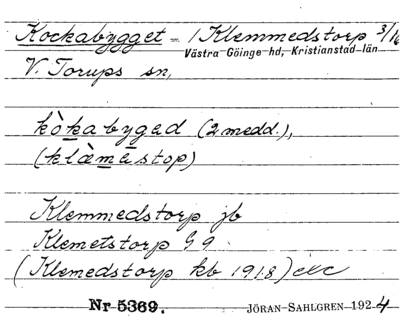 Kockabygget – 1 Klemmedstorp 3/16
Västra Göinge hd, Kristianstad län
V. Torups sn,
kòkabyged (2 medd.),
(klæ̀mėstop)
Klemmedstorp jb
Klemetstorp G 9
(Klemedstorp kb 1918) etc
Nr 5369. JÖRAN SAHLGREN 1924